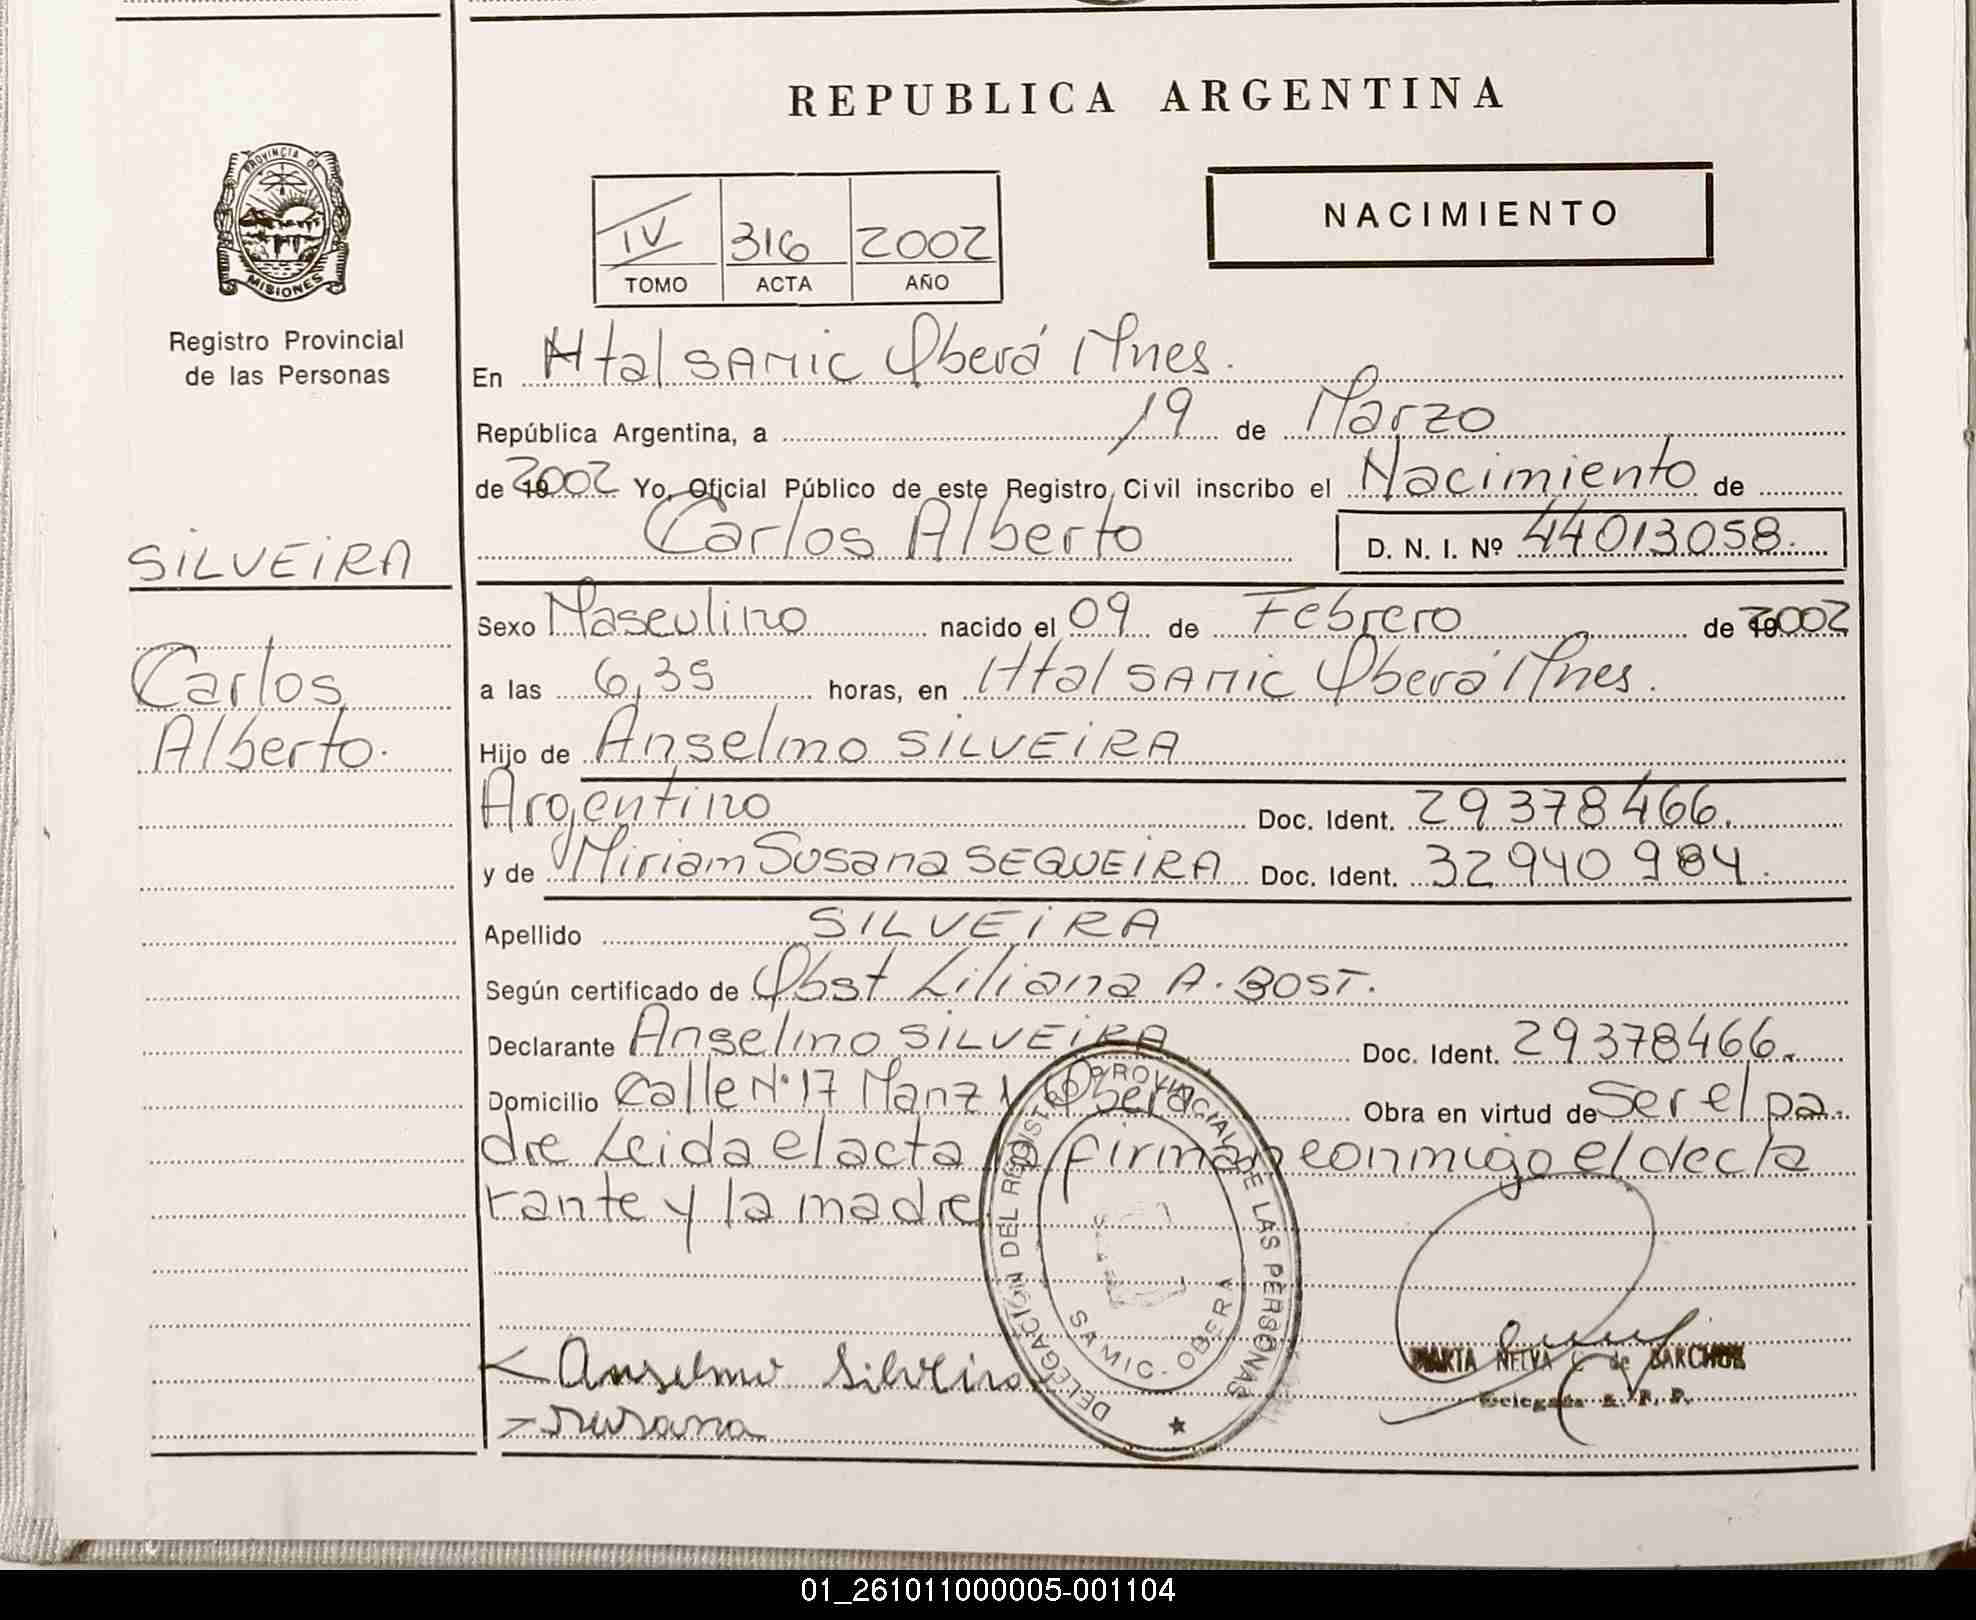 REPUBLICA ARGENTINA
PROVINCIA DE MISIONES
Registro Provincial
de las Personas
IV 316 2002
TOMO ACTA AÑO
NACIMIENTO
SILVEIRA
Carlos
Alberto.
En Htal SAMIC Oberá Mnes.
República Argentina, a 19 de Marzo
de 2002 Yo, Oficial Público de este Registro Civil inscribo el Nacimiento de
Carlos Alberto D. N. I. Nº 44013058.
Sexo Masculino nacido el 09 de Febrero de 2002
a las 6,35 horas, en Htal SAMIC Oberá Mnes.
Hijo de Anselmo SILVEIRA
Argentino Doc. Ident. 29378466.
y de Miriam Susana SEQUEIRA Doc. Ident. 32940984.
Apellido SILVEIRA
Según certificado de Obst Liliana A. BOST.
Declarante Anselmo SILVEIRA Doc. Ident. 29378466.
Domicilio Calle Nº 17 Manz Oberá Obra en virtud de Ser el pa
dre Leida el acta la firman conmigo el decla
rante y la madre
DELEGACIÓN DEL REGISTRO PROVINCIAL DE LAS PERSONAS
SAMIC - OBERA
Anselmo Silveira
Susana
MARTA NELVA de BARCHUK
Delegada R. P. P.
01_261011000005-001104